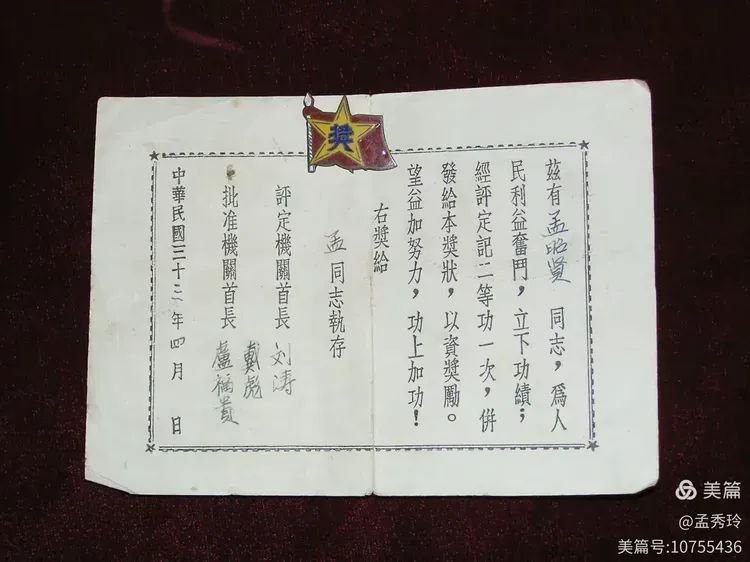 奖
茲有孟昭賢 同志，為人
民利益奮鬥，立下功績；
經評定記二等功一次，併
發給本獎狀，以資獎勵。
望益加努力，功上加功！
右獎給
孟同志執存
評定機關首長 刘涛
戴彪
批准機關首長 盧福貴
中華民國三十三年四月 日
美篇
@孟秀玲
美篇号:10755436